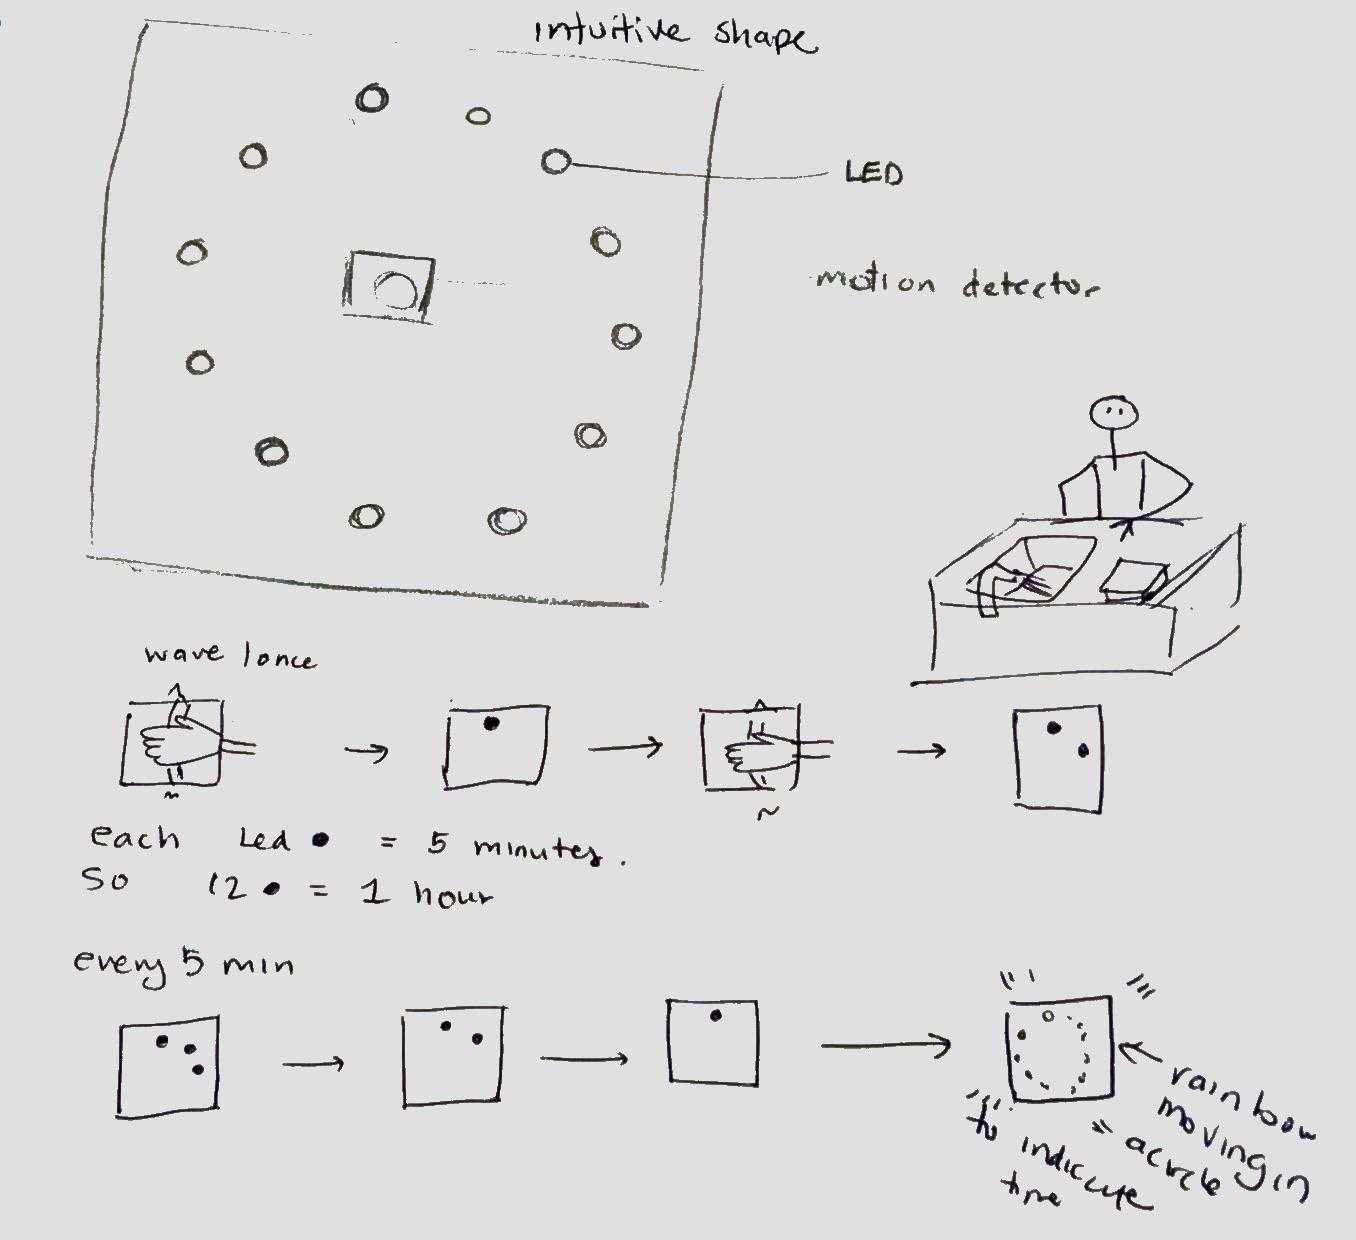 intuitive shape
LED
motion detector
wave 1 once
each Led ● = 5 minutes.
So 12 ● = 1 hour
every 5 min
rainbow
moving in
a circle
to indicate
time